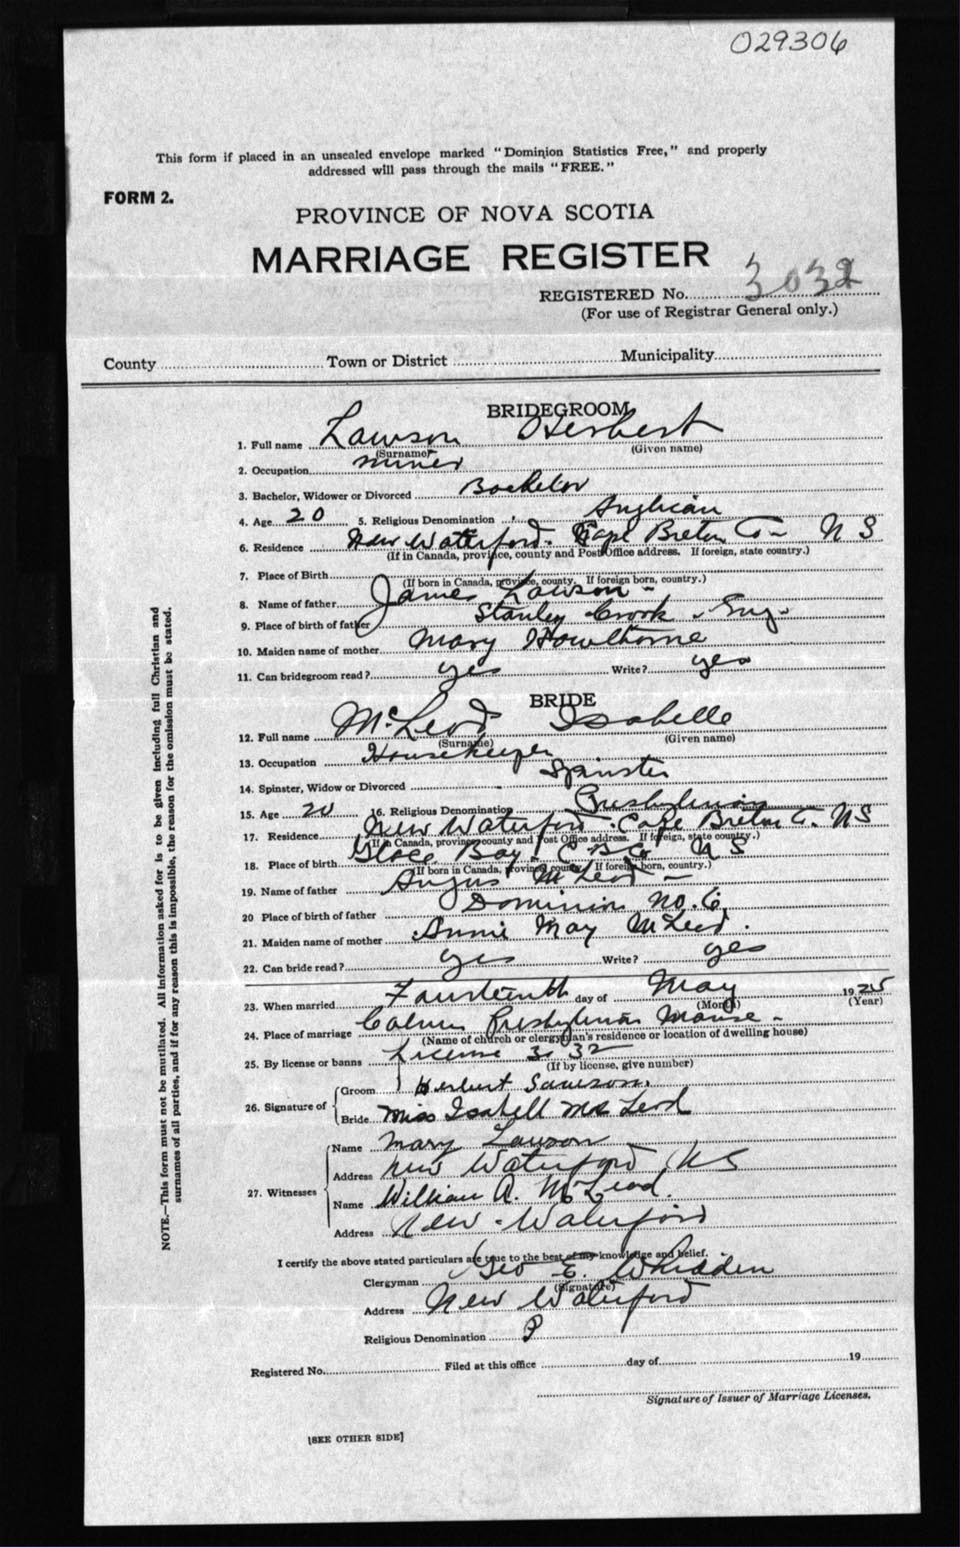 029306
This form if placed in an unsealed envelope marked "Dominion Statistics Free," and properly
addressed will pass through the mails "FREE."
FORM 2.
PROVINCE OF NOVA SCOTIA
MARRIAGE REGISTER
REGISTERED No. 3032
(For use of Registrar General only.)
County Town or District Municipality
BRIDEGROOM
1. Full name Lawson Herbert
(Surname) (Given name)
2. Occupation miner
3. Bachelor, Widower or Divorced Bachelor
4. Age 20 5. Religious Denomination Anglican
6. Residence New Waterford. Cape Breton Co - N S
(If in Canada, province, county and Post Office address. If foreign, state country.)
7. Place of Birth
(If born in Canada, province, county. If foreign born, country.)
8. Name of father James Lawson -
9. Place of birth of father Stanley Crook - Eng -
10. Maiden name of mother Mary Hawthorne
11. Can bridegroom read? yes Write? yes
BRIDE
12. Full name McLeod Isabelle
(Surname) (Given name)
13. Occupation Housekeeper
14. Spinster, Widow or Divorced Spinster
15. Age 20 16. Religious Denomination Presbyterian
17. Residence New Waterford. Cape Breton Co. N S
(If in Canada, province, county and Post Office address. If foreign, state country.)
18. Place of birth Glace Bay C B Co N S
(If born in Canada, province, county. If foreign born, country.)
19. Name of father Angus McLeod -
20 Place of birth of father Dominion No. 6
21. Maiden name of mother Annie May McLeod.
22. Can bride read? yes Write? yes
23. When married Fourteenth day of May 1925
(Month) (Year)
24. Place of marriage Calvin Presbyterian Manse -
(Name of church or clergyman's residence or location of dwelling house)
25. By license or banns License 3032
(If by license, give number)
26. Signature of
Groom Herbert Lawson
Bride Miss Isabell McLeod
27. Witnesses
Name Mary Lawson
Address New Waterford N S
Name William A. McLeod.
Address New Waterford
I certify the above stated particulars are true to the best of my knowledge and belief.
Clergyman Geo E. Whidden
(Signature)
Address New Waterford
Religious Denomination P
Registered No. Filed at this office day of 19
Signature of Issuer of Marriage Licenses.
[SEE OTHER SIDE]
NOTE.—This form must not be mutilated. All information asked for is to be given including full Christian and
surnames of all parties, and if for any reason this is impossible, the reason for the omission must be stated.